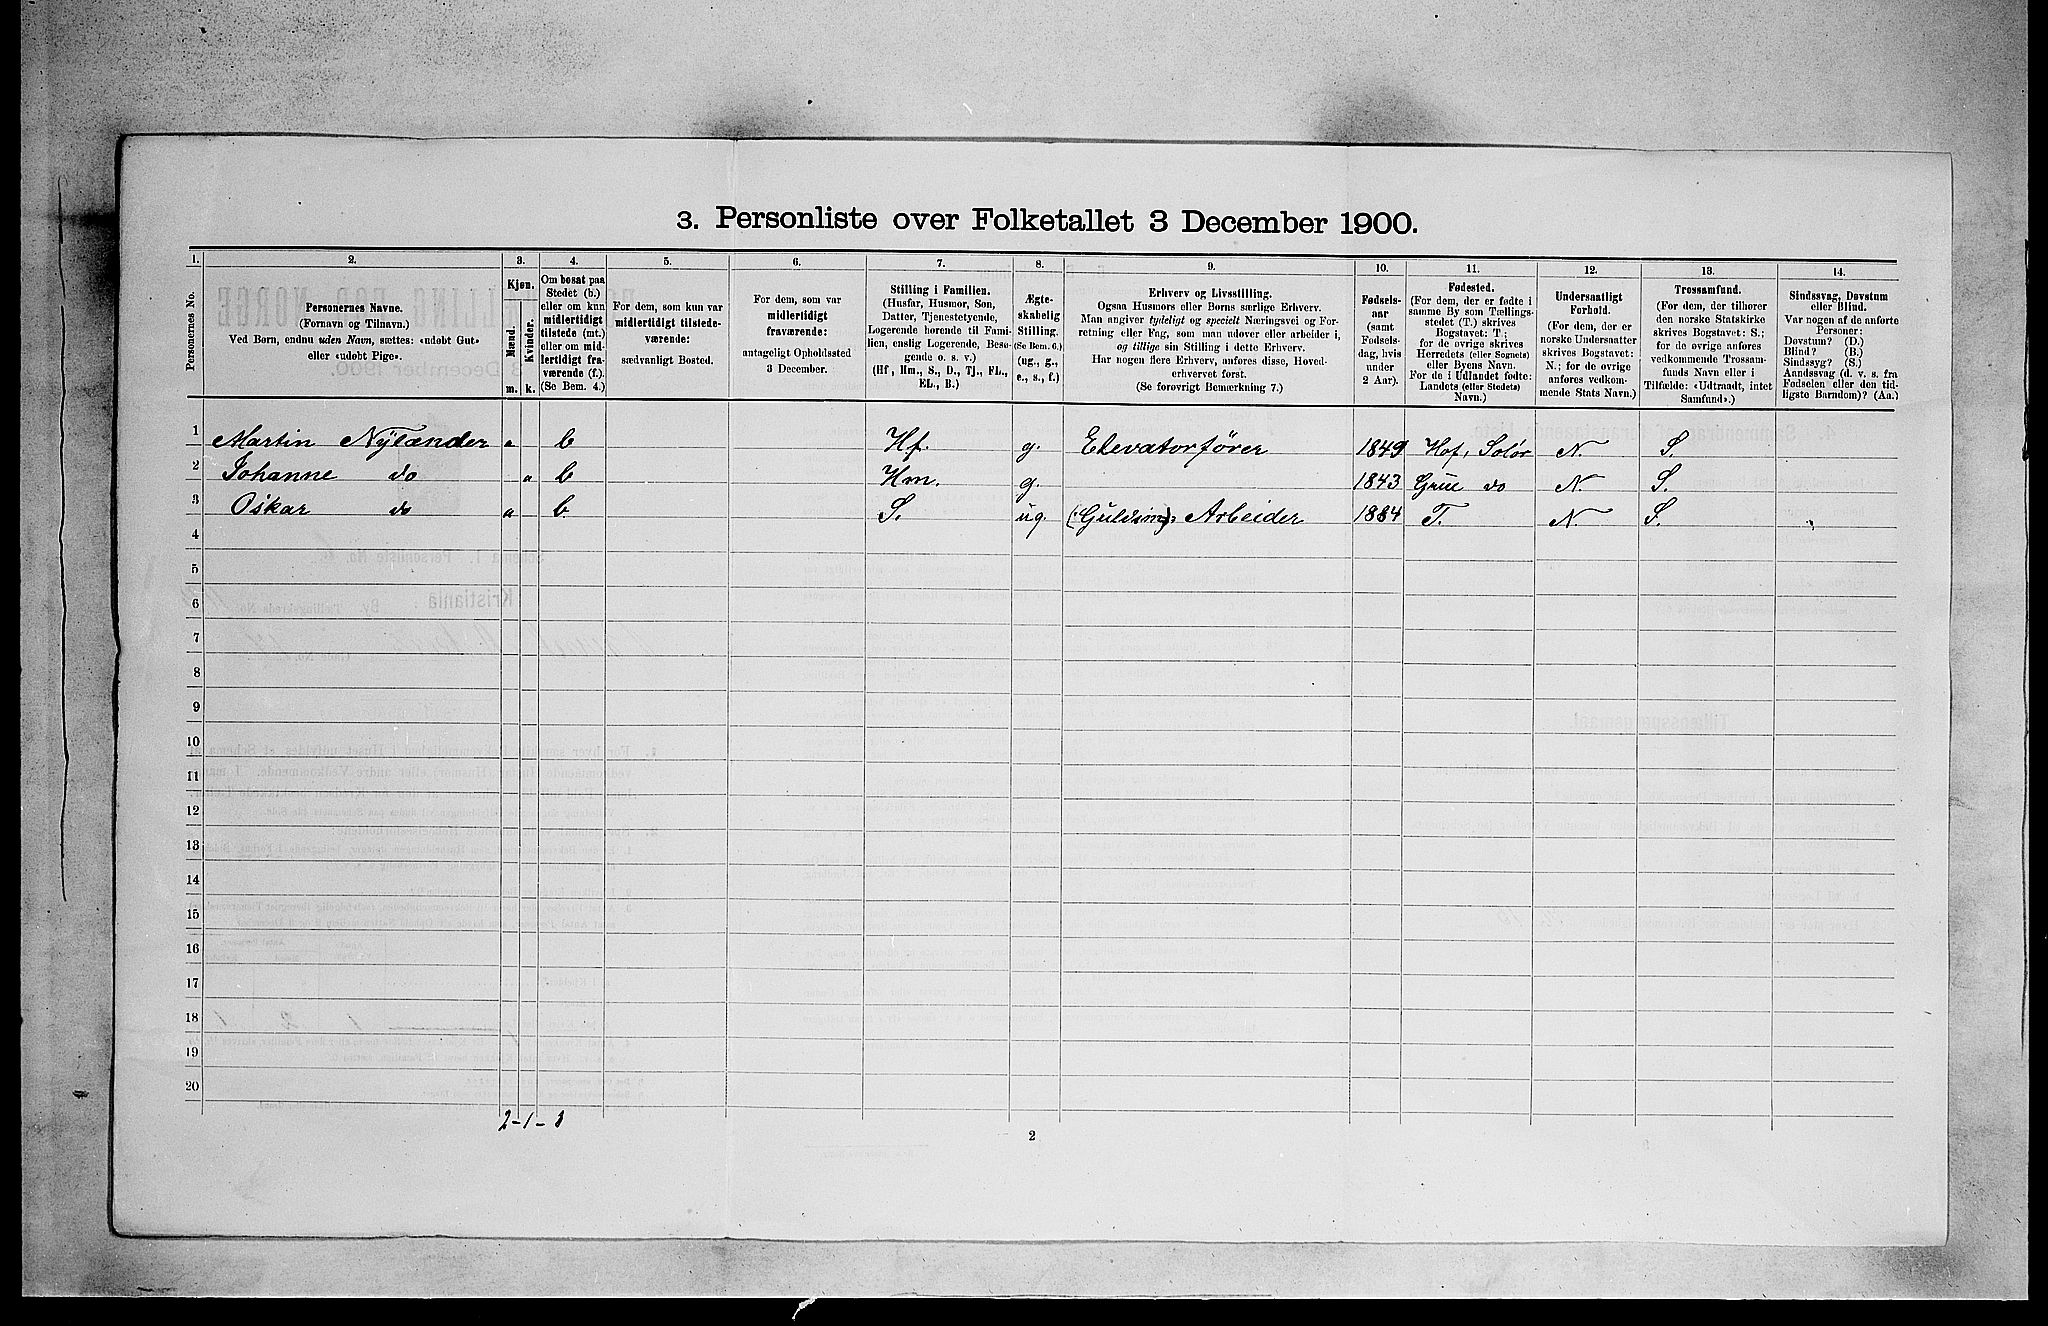 3. Personliste over Folketallet 3 December 1900.
1. 2. 3. 4. 5. 6. 7. 8. 9. 10. 11. 12. 13. 14.
Personernes No.
Personernes Navne.
(Fornavn og Tilnavn.)
Ved Børn, endnu uden Navn, sættes: «udøbt Gut»
eller «udøbt Pige».
Kjøn.
Mænd.
Kvinder.
m. k.
Om bosat paa
Stedet (b.)
eller om kun
midlertidigt
tilstede (mt.)
eller om mid-
lertidigt fra-
værende (f.).
(Se Bem. 4.)
For dem, som kun var
midlertidigt tilstede-
værende:
sædvanligt Bosted.
For dem, som var
midlertidigt
fraværende:
antageligt Opholdssted
3 December.
Stilling i Familien.
(Husfar, Husmor, Søn,
Datter, Tjenestetyende,
Logerende hørende til Fami-
lien, enslig Logerende, Besø-
gende o. s. v.)
(Hf, Hm., S., D., Tj., FL.,
EL., B.)
Ægte-
skabelig
Stilling.
(Se Bem. 6.)
(ug., g.,
e., s., f.)
Erhverv og Livsstilling.
Ogsaa Husmors eller Børns særlige Erhverv.
Man angiver tydeligt og specielt Næringsvei og For-
retning eller Fag, som man udøver eller arbeider i,
og tillige sin Stilling i dette Erhverv.
Har nogen flere Erhverv, anføres disse, Hoved-
erhvervet først.
(Se forøvrigt Bemærkning 7.)
Fødsels-
aar
(samt
Fødsels-
dag, hvis
under
2 Aar).
Fødested.
(For dem, der er fødte i
samme By som Tællings-
stedet (T.) skrives
Bogstavet: T.;
for de øvrige skrives
Herredets (eller Sognets)
eller Byens Navn.
For de i Udlandet fødte:
Landets (eller Stedets)
Navn.)
Undersaatligt
Forhold.
(For dem, der er
norske Undersaatter
skrives Bogstavet:
N.; for de øvrige
anføres vedkom-
mende Stats Navn.)
Trossamfund.
(For dem, der tilhører
den norske Statskirke
skrives Bogstavet: S.;
for de øvrige anføres
vedkommende Trossam-
funds Navn eller i
Tilfælde: «Udtraadt, intet
Samfund».)
Sindssvag, Døvstum
eller Blind.
Var nogen af de anførte
Personer:
Døvstum? (D.)
Blind? (B.)
Sindssyg? (S.)
Aandssvag (d. v. s. fra
Fødselen eller den tid-
ligste Barndom)? (Aa.)
1 Martin Nylænder b Hf. g. Elevatorfører 1849 Hof, Solør N. S.
2 Johanne do b Hm. g. 1843 Grue do N. S.
3 Oskar do b S. ug. Arbeider 1884 T. N. S.
4
5
6
7
8
9
10
11
12
13
14
15
16
17
18
19
20
2